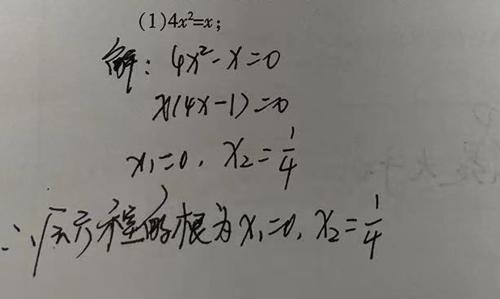 (1)4x²=x;
解: 4x²-x=0
x(4x-1)=0
x₁=0, x₂=1/4
∴原方程的根为x₁=0, x₂=1/4